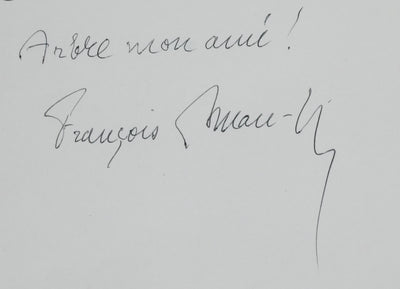 Arbre mon ami !
François